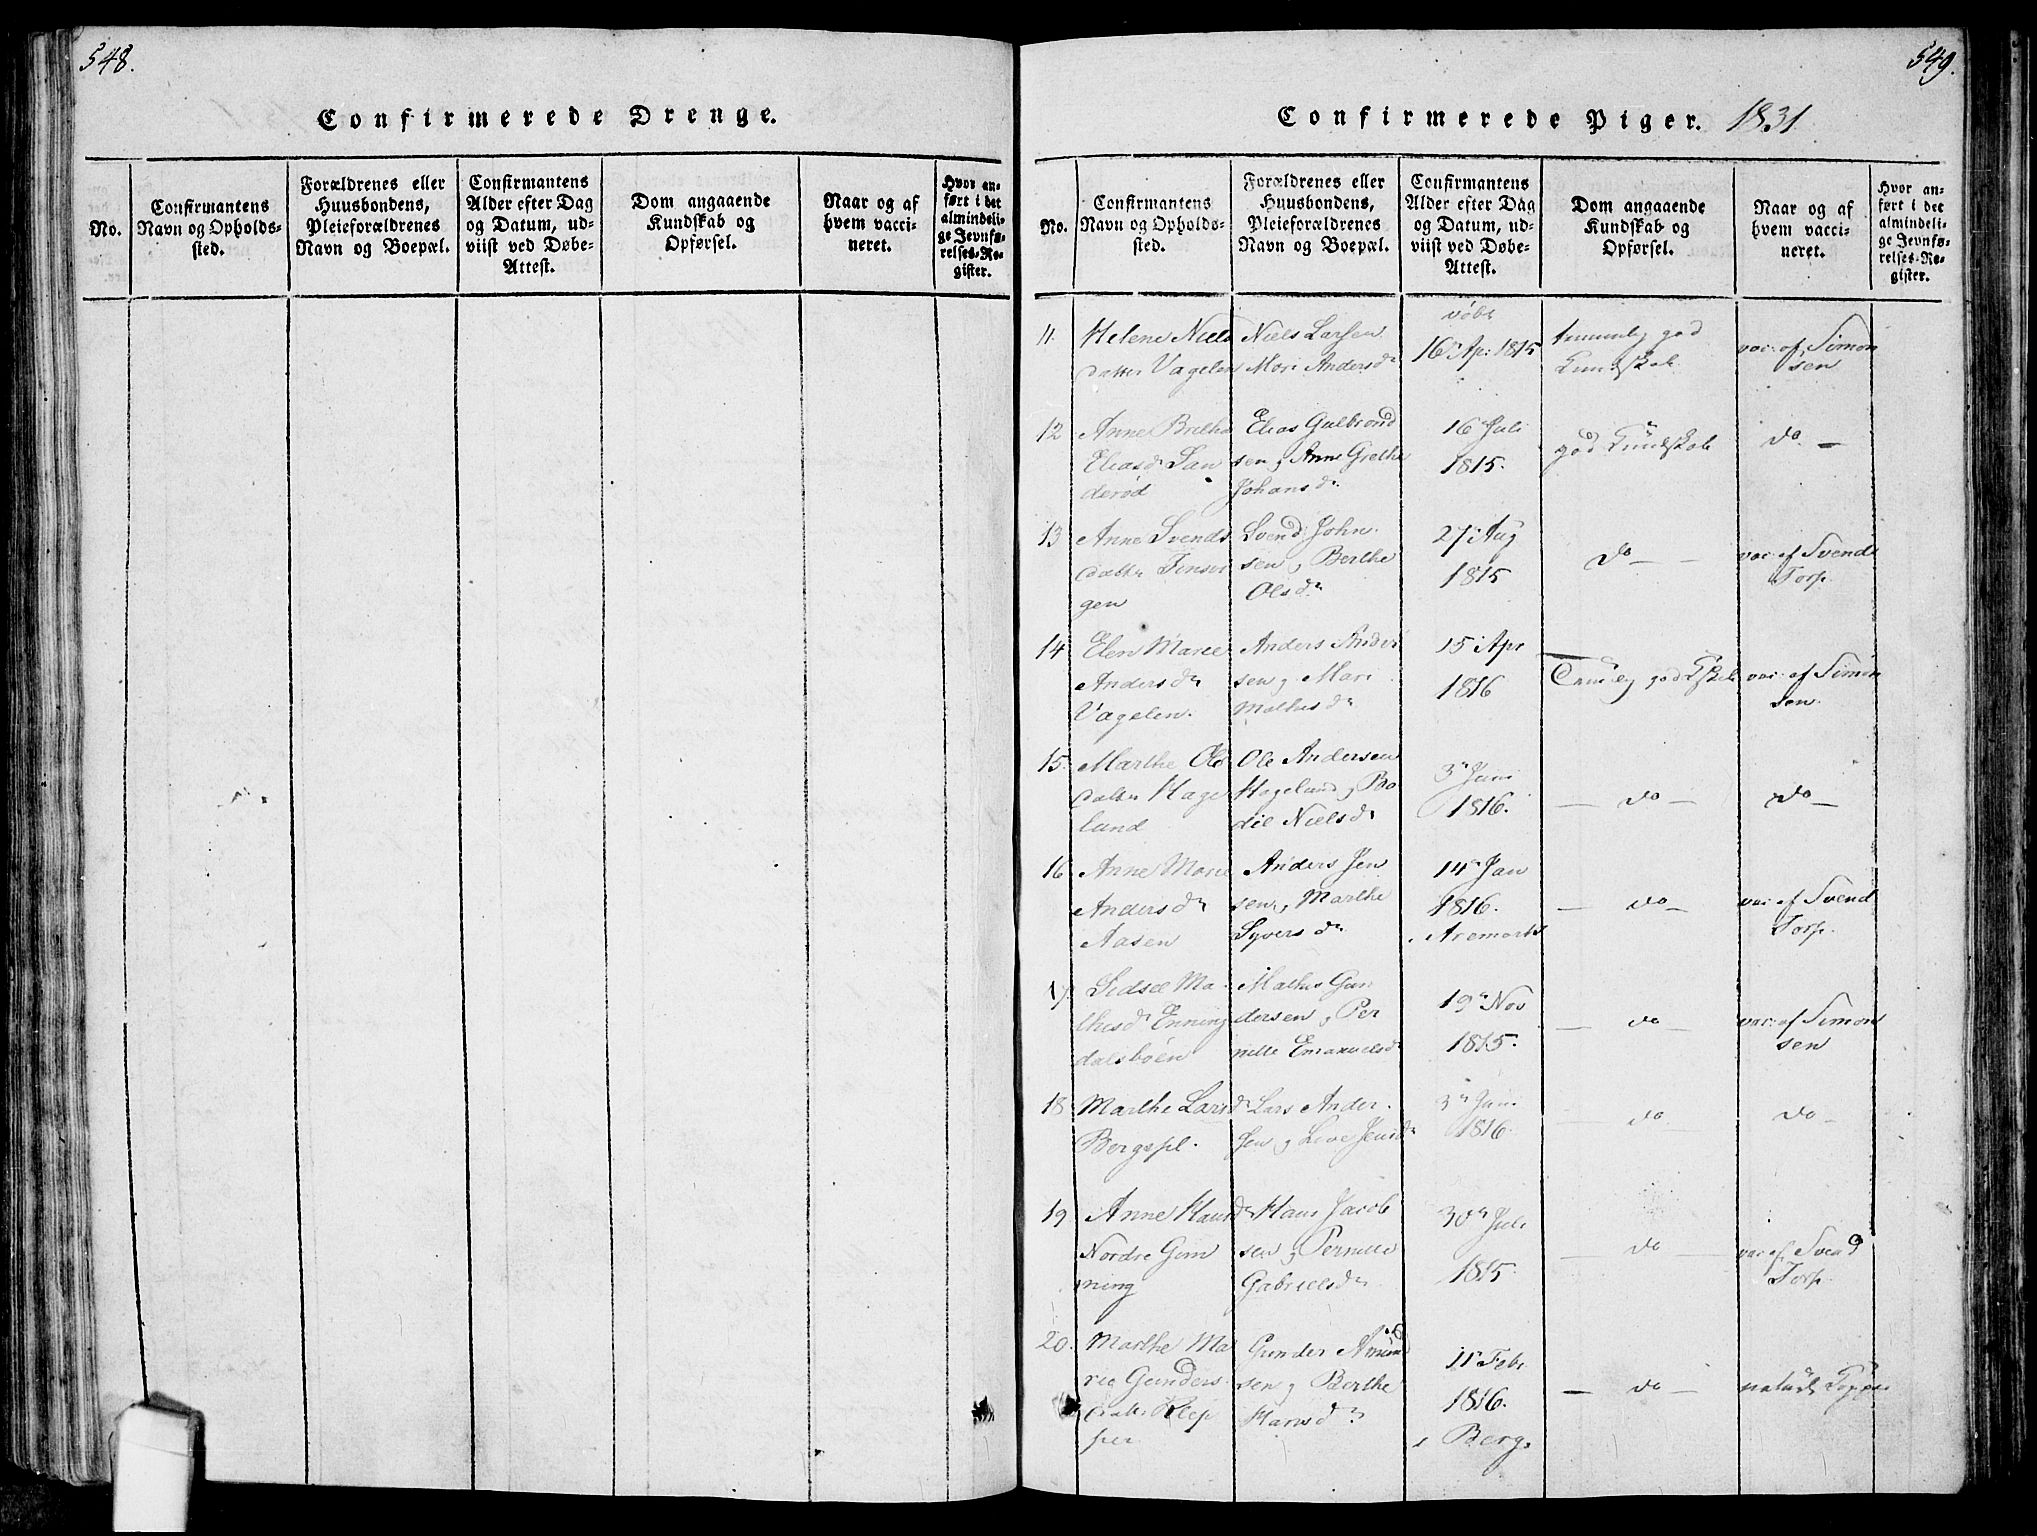 548.
Confirmerede Drenge.
No.
Confirmantens
Navn og Opholds-
sted.
Forældrenes eller
Huusbondens,
Pleieforældrenes
Navn og Boepæl.
Confirmantens
Alder efter Dag
og Datum, ud-
viist ved Døbe-
Attest.
Dom angaaende
Kundskab og
Opførsel.
Naar og af
hvem vacci-
neret.
Hvor an-
ført i det
almindeli-
ge Jevnfø-
relses-Re-
gister.
549.
Confirmerede Piger. 1831
No.
Confirmantens
Navn og Opholds-
sted.
Forældrenes eller
Huusbondens,
Pleieforældrenes
Navn og Boepæl.
Confirmantens
Alder efter Dag
og Datum, ud-
viist ved Døbe-
Attest.
Dom angaaende
Kundskab og
Opførsel.
Naar og af
hvem vacci-
neret.
Hvor an-
ført i det
almindeli-
ge Jevnfø-
relses-Re-
gister.
11.
Helene Niels
datter Vagelen
Niels Larsen
Mari Andersdr
døbt
16 Apr: 1815
temmelig god
Kundskab
vac: af Simon
sen
12
Anne Brethe
Eliasdr San
derød
Elias Gulbrand
sen, Anne Grethe
Johansdr
16 Juli
1815.
god Kundskab
do —
13
Anne Svends
datter
gen
Svend John
sen, Berthe
Olsdr
27 Aug
1815
do —
vac: af Svend
Torp.
14
Elen Marie
Andersdr
Vagelen.
Anders Ander
sen, Mari
Mathisdr
15 Apr
1816
god Kskab
vac: af Simon
sen.
15.
Marthe Ols
datter Hage
lund
Ole Andersen
Hagelund, Bo
dil Nielsdr
3 Juni
1816.
— do —
do —
16
Anne Marie
Andersdr
Aasen
Anders Jen
sen, Marthe
Syversdr
14 Jan
1816.
i Aremark
— do —
vac: af Svend
Torp.
17.
Sidsel Ma-
thisdr Enning
dalsbøen
Mathis Gun
dersen, Per
nille Emanuelsdr
19 Nov
1815.
— do —
vac: af Simon
sen
18
Marthe Larsdr
Bergspl.
Lars Ander-
sen, Live Jensdr
3 Juni
1816.
— do
do —
19
Anne Hansdr
Nordre Gim
ming
Hans Jacob
sen, Pernille
Gabrielsdr
30 Juli
1815.
— do —
vac: af Svend
Torp.
20.
Marthe Ma
rie Gunders
datter Klep
per
Gunder Amund
sen, Berthe
Hansdr
11 Febr
1816.
i Berg.
— do —
naturl. Kopper